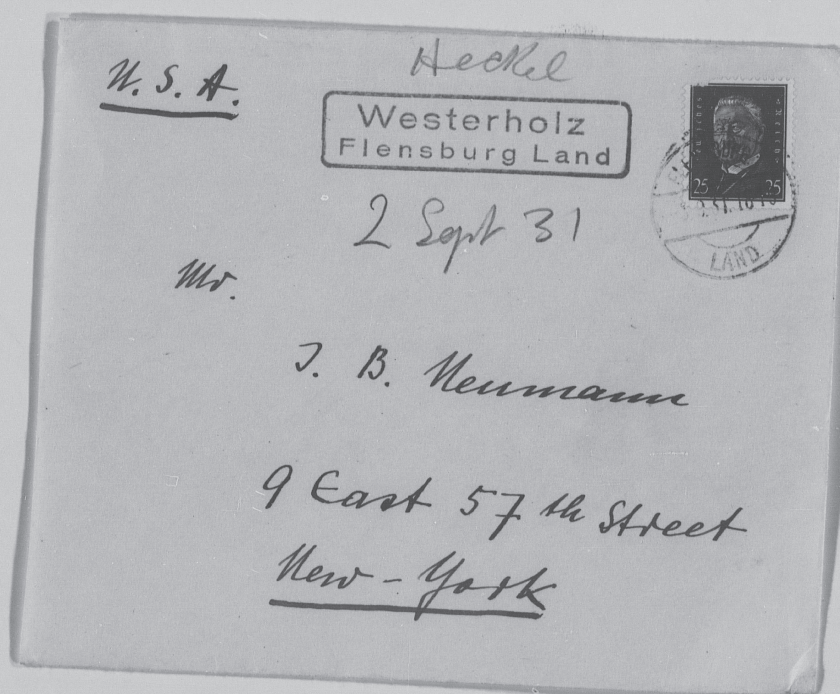 Heckel
U. S. A.
Westerholz
Flensburg Land
25 25
LAND
2 Sept 31
Mr.
J. B. Neumann
9 East 57th Street
New-York